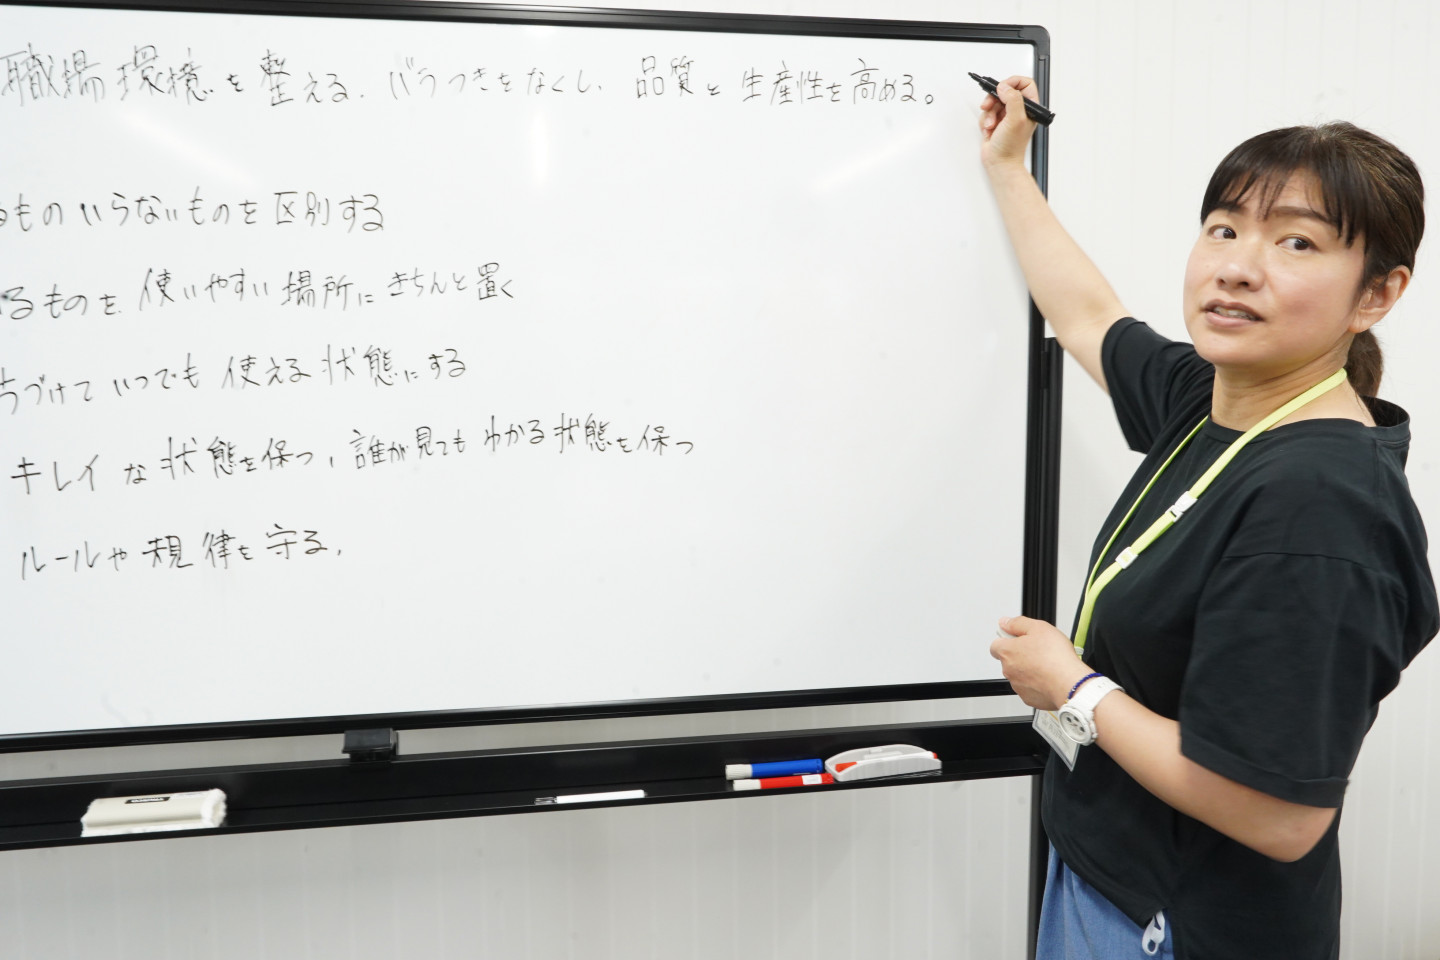 職場環境を整える、バラつきをなくし、品質と生産性を高める。
るものいらないものを区別する
るものを、使いやすい場所にきちんと置く
ちづけていつでも使える状態にする
キレイな状態を保つ、誰が見てもわかる状態を保つ
ルールや規律を守る、